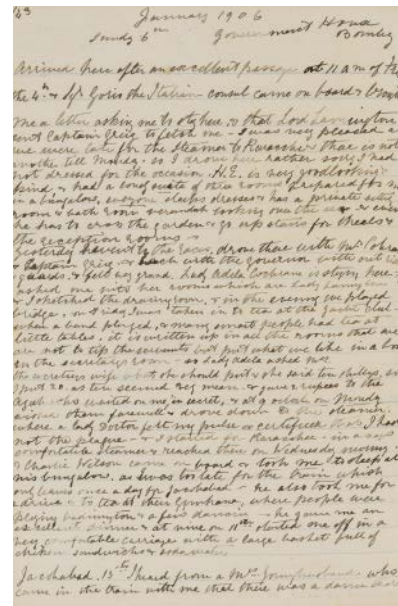 63
January 1906
Sunday 6th Government House
Bombay
Arrived here after an excellent passage at 11 am of
the 4th & Sgr Goris the Italian consul came on board &
me a letter asking me to stay here & that Lord Lamington
sent Captain Greig to fetch me - I was very pleased a
we were late for the steamer to Karachee & there is not
another till Monday. so I drove here rather sorry I had
not dressed for the occasion. H.E. is very goodlooking
kind, & had a lovely suite of rooms prepared for m
in a bungalow, everyone sleeps dresses & has a private sitting
room & bath room verandah looking over the sea &
he has to cross the garden & go up stairs for meals &
the reception rooms
Yesterday we went to the races, drove there with Mrs
& Captain Greig, & back with the governor with out
guards & felt very grand. Lady Adela Cochrane is staying here
asked me into her rooms which are Lady
& I sketched the drawing room, & in the evening we played
bridge. on Friday I was taken in to tea at the Yacht Club -
when a band played, & many smart people had tea at
little tables. it is written up in all the rooms that we
are not to tip the servants but put what we like in a box
in the secretarys room - so Lady Adela asked
the secretarys wife what she should put & she said ten shillings, so
I put 20. as ten seemed so mean. & gave 5 rupees to the
Ayah who waited on me in secret, & at 9 o'clock on Monday
I bade them farewell & drove down to the steamer.
where a lady Doctor felt my pulse & certified that I had
not the plague - & I started for Karachee - in a very
comfortable steamer & reached there on Wednesday morning
& Charlie Welson came on board & took me to sleep at
his bungalow, as I was too late for the train which
only leaves once a day for Jacobabad - he also took me for
a drive & to tea at their Gymkana, where people were
playing badminton & a few dancing - he gave me an
excellent dinner & at nine on 11th started me off in a
very comfortable carriage with a large basket full of
chicken sandwiches & soda water
Jacobabad. 13th I heard from a Mrs Younghusband who
came in the train with me that there was a dance